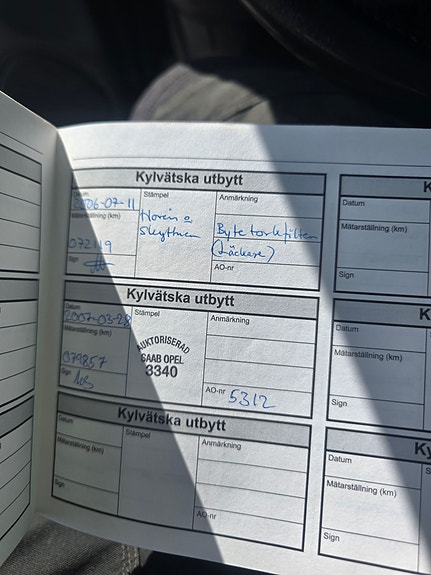 Kylvätska utbytt
Datum
2006-07-11
Mätarställning (km)
072119
Sign
Stämpel
Anmärkning
Byte torkfilter
(Läckare)
AO-nr
Kylvätska utbytt
Datum
2007-03-28
Mätarställning (km)
079857
Sign
Stämpel
AUKTORISERAD
SAAB OPEL
3340
Anmärkning
AO-nr 5312
Kylvätska utbytt
Datum
Mätarställning (km)
Sign
Stämpel
Anmärkning
AO-nr
Datum
Mätarställning (km)
Sign
K
Datum
Mätarställning (km)
Sign
Ky
Datum
Mätarställning (km)
Sign